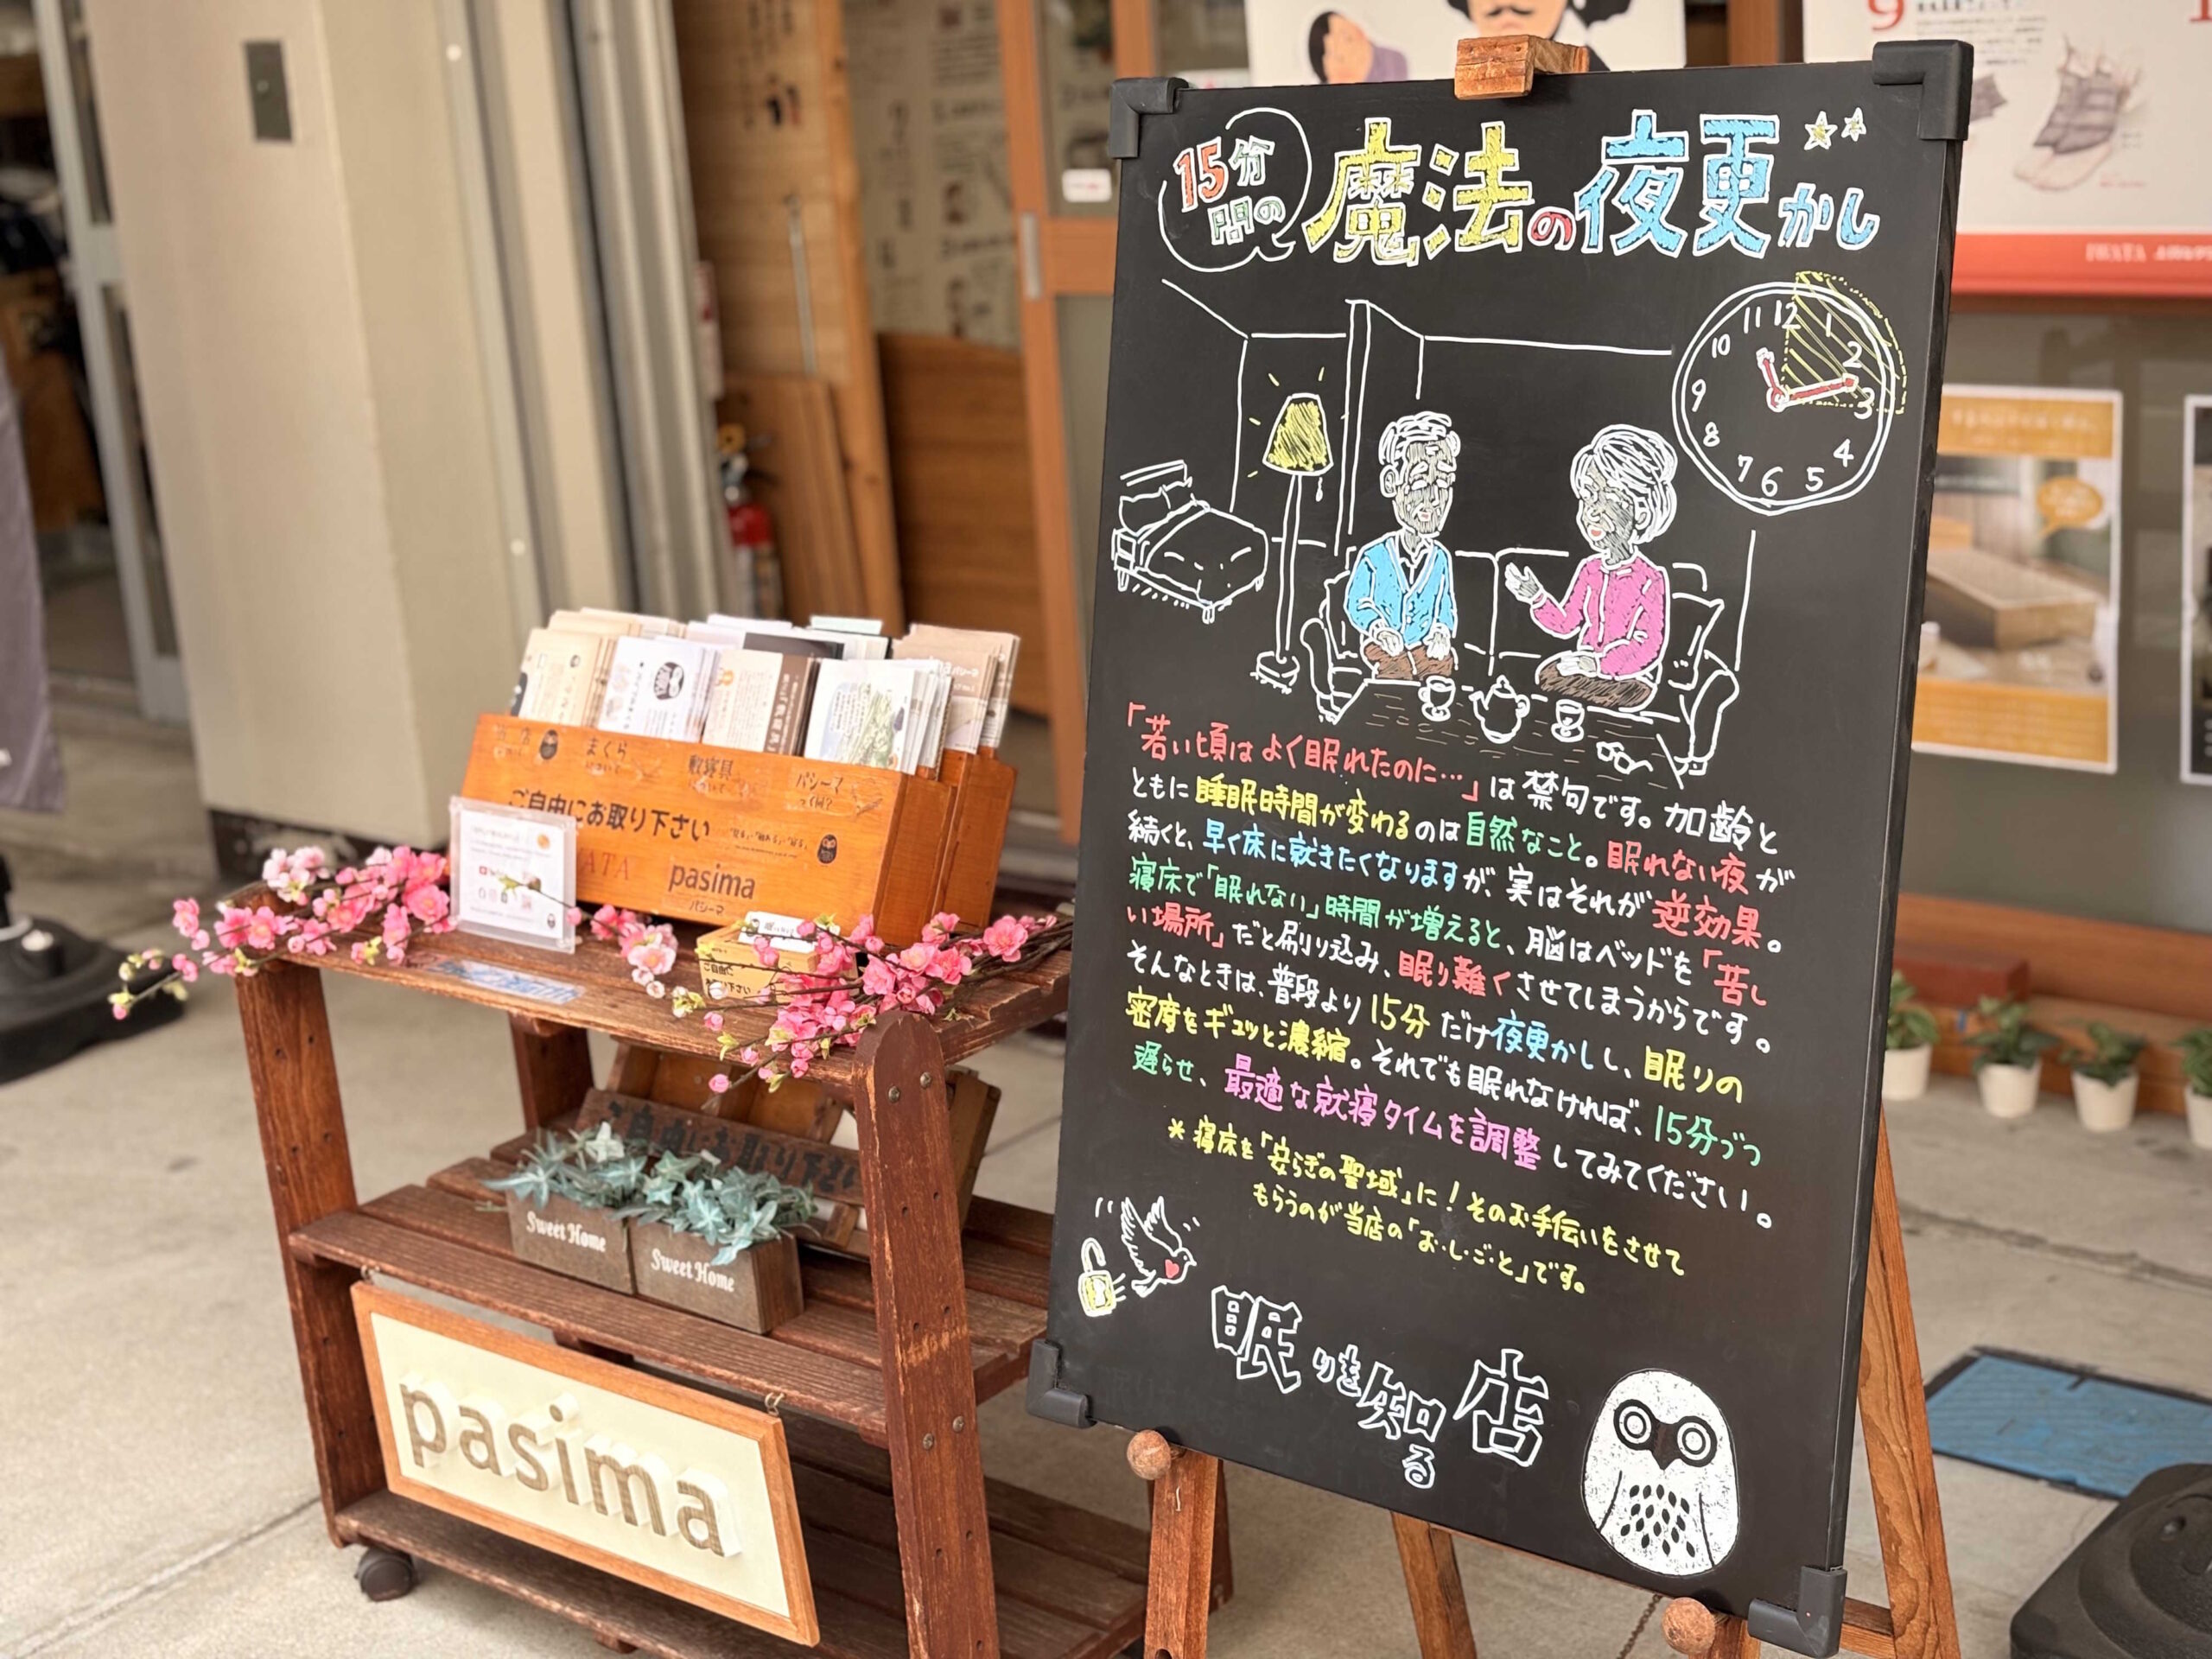 15分
間の
魔法の夜更かし
11 12 1
10 2
9 3
8 4
7 6 5
「若い頃はよく眠れたのに…」は禁句です。加齢と
ともに睡眠時間が変わるのは自然なこと。眠れない夜が
続くと、早く床に就きたくなりますが、実はそれが逆効果。
寝床で「眠れない」時間が増えると、脳はベッドを「苦し
い場所」だと刷り込み、眠り難くさせてしまうからです。
そんなときは、普段より15分だけ夜更かしし、眠りの
密度をギュッと濃縮。それでも眠れなければ、15分づつ
遅らせ、最適な就寝タイムを調整してみてください。
*寝床を「安らぎの聖域」に!そのお手伝いをさせて
もらうのが当店の「お・し・ご・と」です。
眠りを知る店
まくら
について
敷寝具
について
パシーマ
って何?
ご自由にお取り下さい
pasima
パシーマ
ご自由に
お取り下さい
ご自由にお取り下さい
Sweet Home
Sweet Home
pasima
9
IWATA